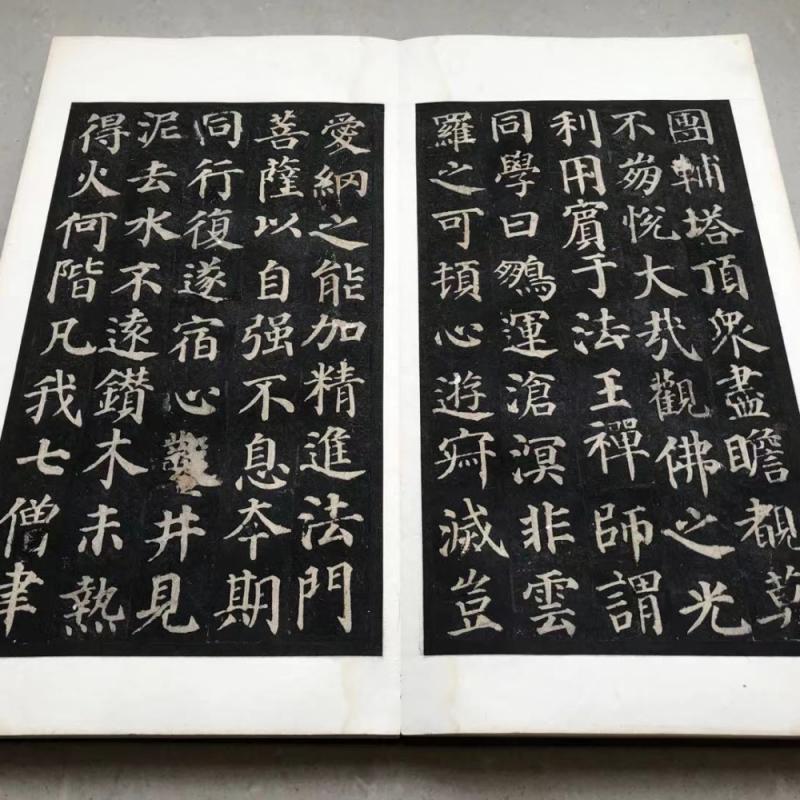 團輔塔頂眾盡瞻覩莫
不崩悅大哉觀佛之光
利用賓于法王禪師謂
同學曰鵬運滄溟非雲
羅之可頓心遊寂滅豈
愛網之能加精進法門
菩薩以自强不息夲期
同行復遂宿心鑿井見
泥去水不遠鑽木未熱
得火何階凡我七僧聿